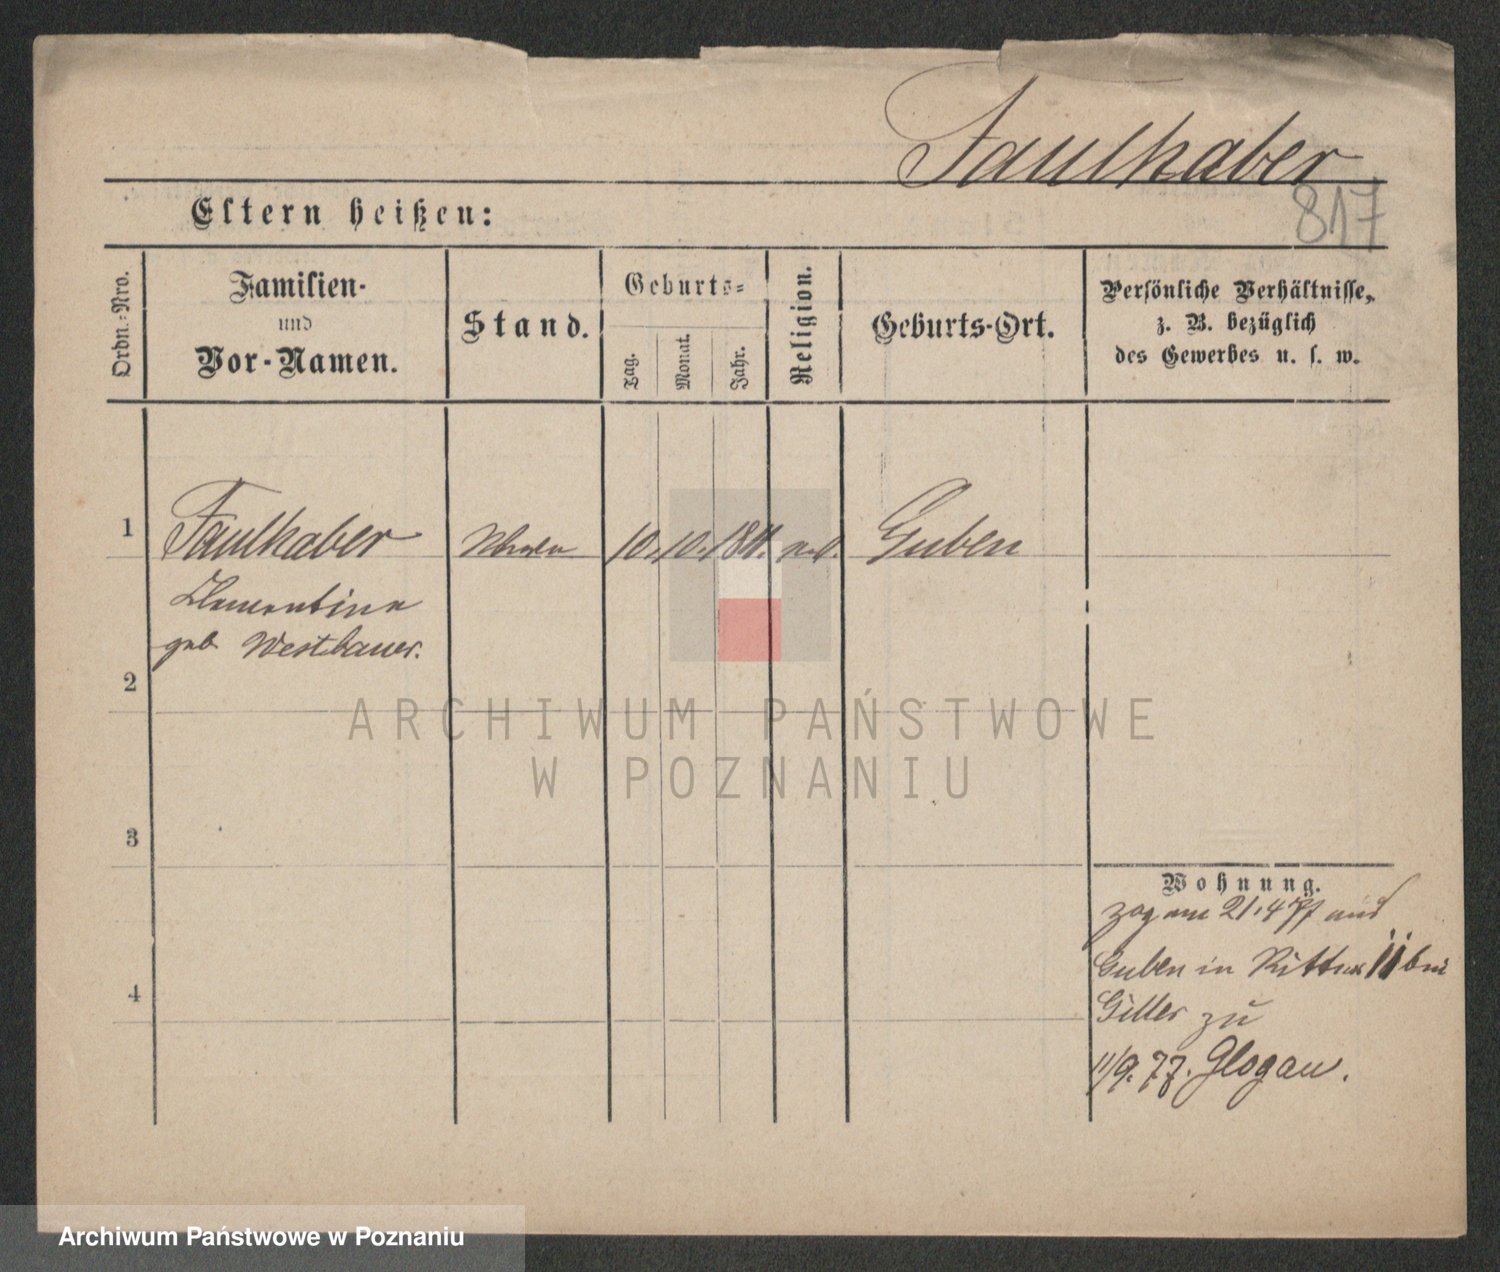 Faulhaber
817
Eltern heißen:
Ordn.-Nro.
Familien-
und
Vor-Namen.
Stand.
Geburts-
Tag.
Monat.
Jahr.
Religion.
Geburts-Ort.
Persönliche Verhältnisse,
z. B. bezüglich
des Gewerbes u. s. w.
1
Faulhaber
10. 10.
Guben
Clementine
geb Westbauer.
2
ARCHIWUM PAŃSTWOWE
W POZNANIU
3
4
Wohnung.
zog am 21.4 77 aus
Guben in Ritter 11 bei
Giller zu
11/9. 77. Glogau.
Archiwum Państwowe w Poznaniu